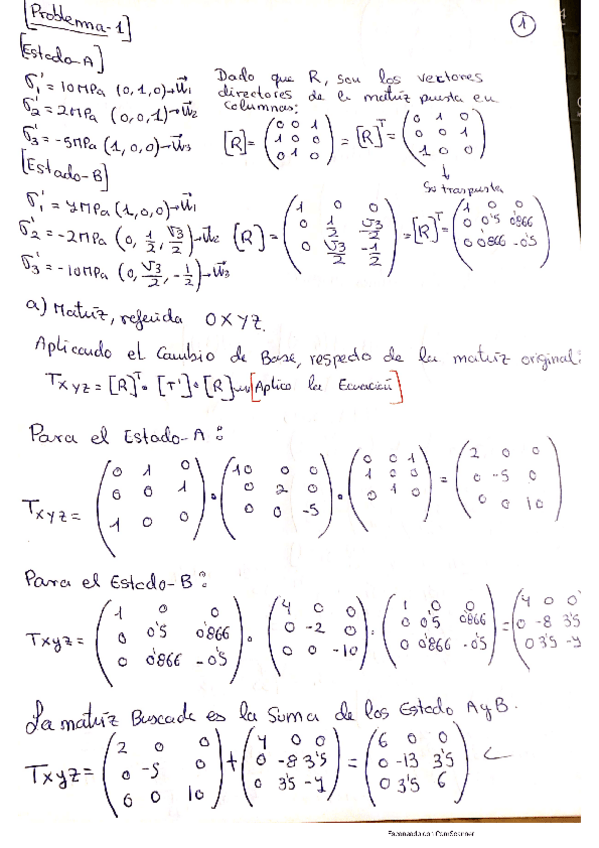 [Problema-1]
1
[Estado A]
σ1' = 10MPa (0,1,0)→w⃗1
σ2' = 2MPa (0,0,1)→w⃗2
σ3' = -5MPa (1,0,0)→w⃗3
Dado que R, son los vectores
directores de la matriz puesta en
columnas:
[R]= (0 0 1; 1 0 0; 0 1 0) = [R]ᵀ= (0 1 0; 0 0 1; 1 0 0)
↓
Su traspuesta
[Estado-B]
σ1' = 4MPa (1,0,0)→w⃗1
σ2' = -2MPa (0, 1/2, √3/2)→w⃗2
σ3' = -10MPa (0, √3/2, -1/2)→w⃗3
[R] = (1 0 0; 0 1/2 √3/2; 0 √3/2 -1/2) = [R]ᵀ= (1 0 0; 0 0'5 0'866; 0 0'866 -0'5)
a) Matriz, referida OXYZ.
Aplicando el Cambio de Base, respecto de la matriz original:
Txyz = [R]ᵀ · [T'] · [R] [Aplico la Ecuación]
Para el Estado-A:
Txyz = (0 1 0; 0 0 1; 1 0 0) · (10 0 0; 0 2 0; 0 0 -5) · (0 0 1; 1 0 0; 0 1 0) = (2 0 0; 0 -5 0; 0 0 10)
Para el Estado-B:
Txyz = (1 0 0; 0 0'5 0'866; 0 0'866 -0'5) · (4 0 0; 0 -2 0; 0 0 -10) · (1 0 0; 0 0'5 0'866; 0 0'866 -0'5) = (4 0 0; 0 -8 3'5; 0 3'5 -4)
La matriz Buscada es la Suma de los Estado A y B.
Txyz = (2 0 0; 0 -5 0; 0 0 10) + (4 0 0; 0 -8 3'5; 0 3'5 -4) = (6 0 0; 0 -13 3'5; 0 3'5 6)
Escaneado con CamScanner